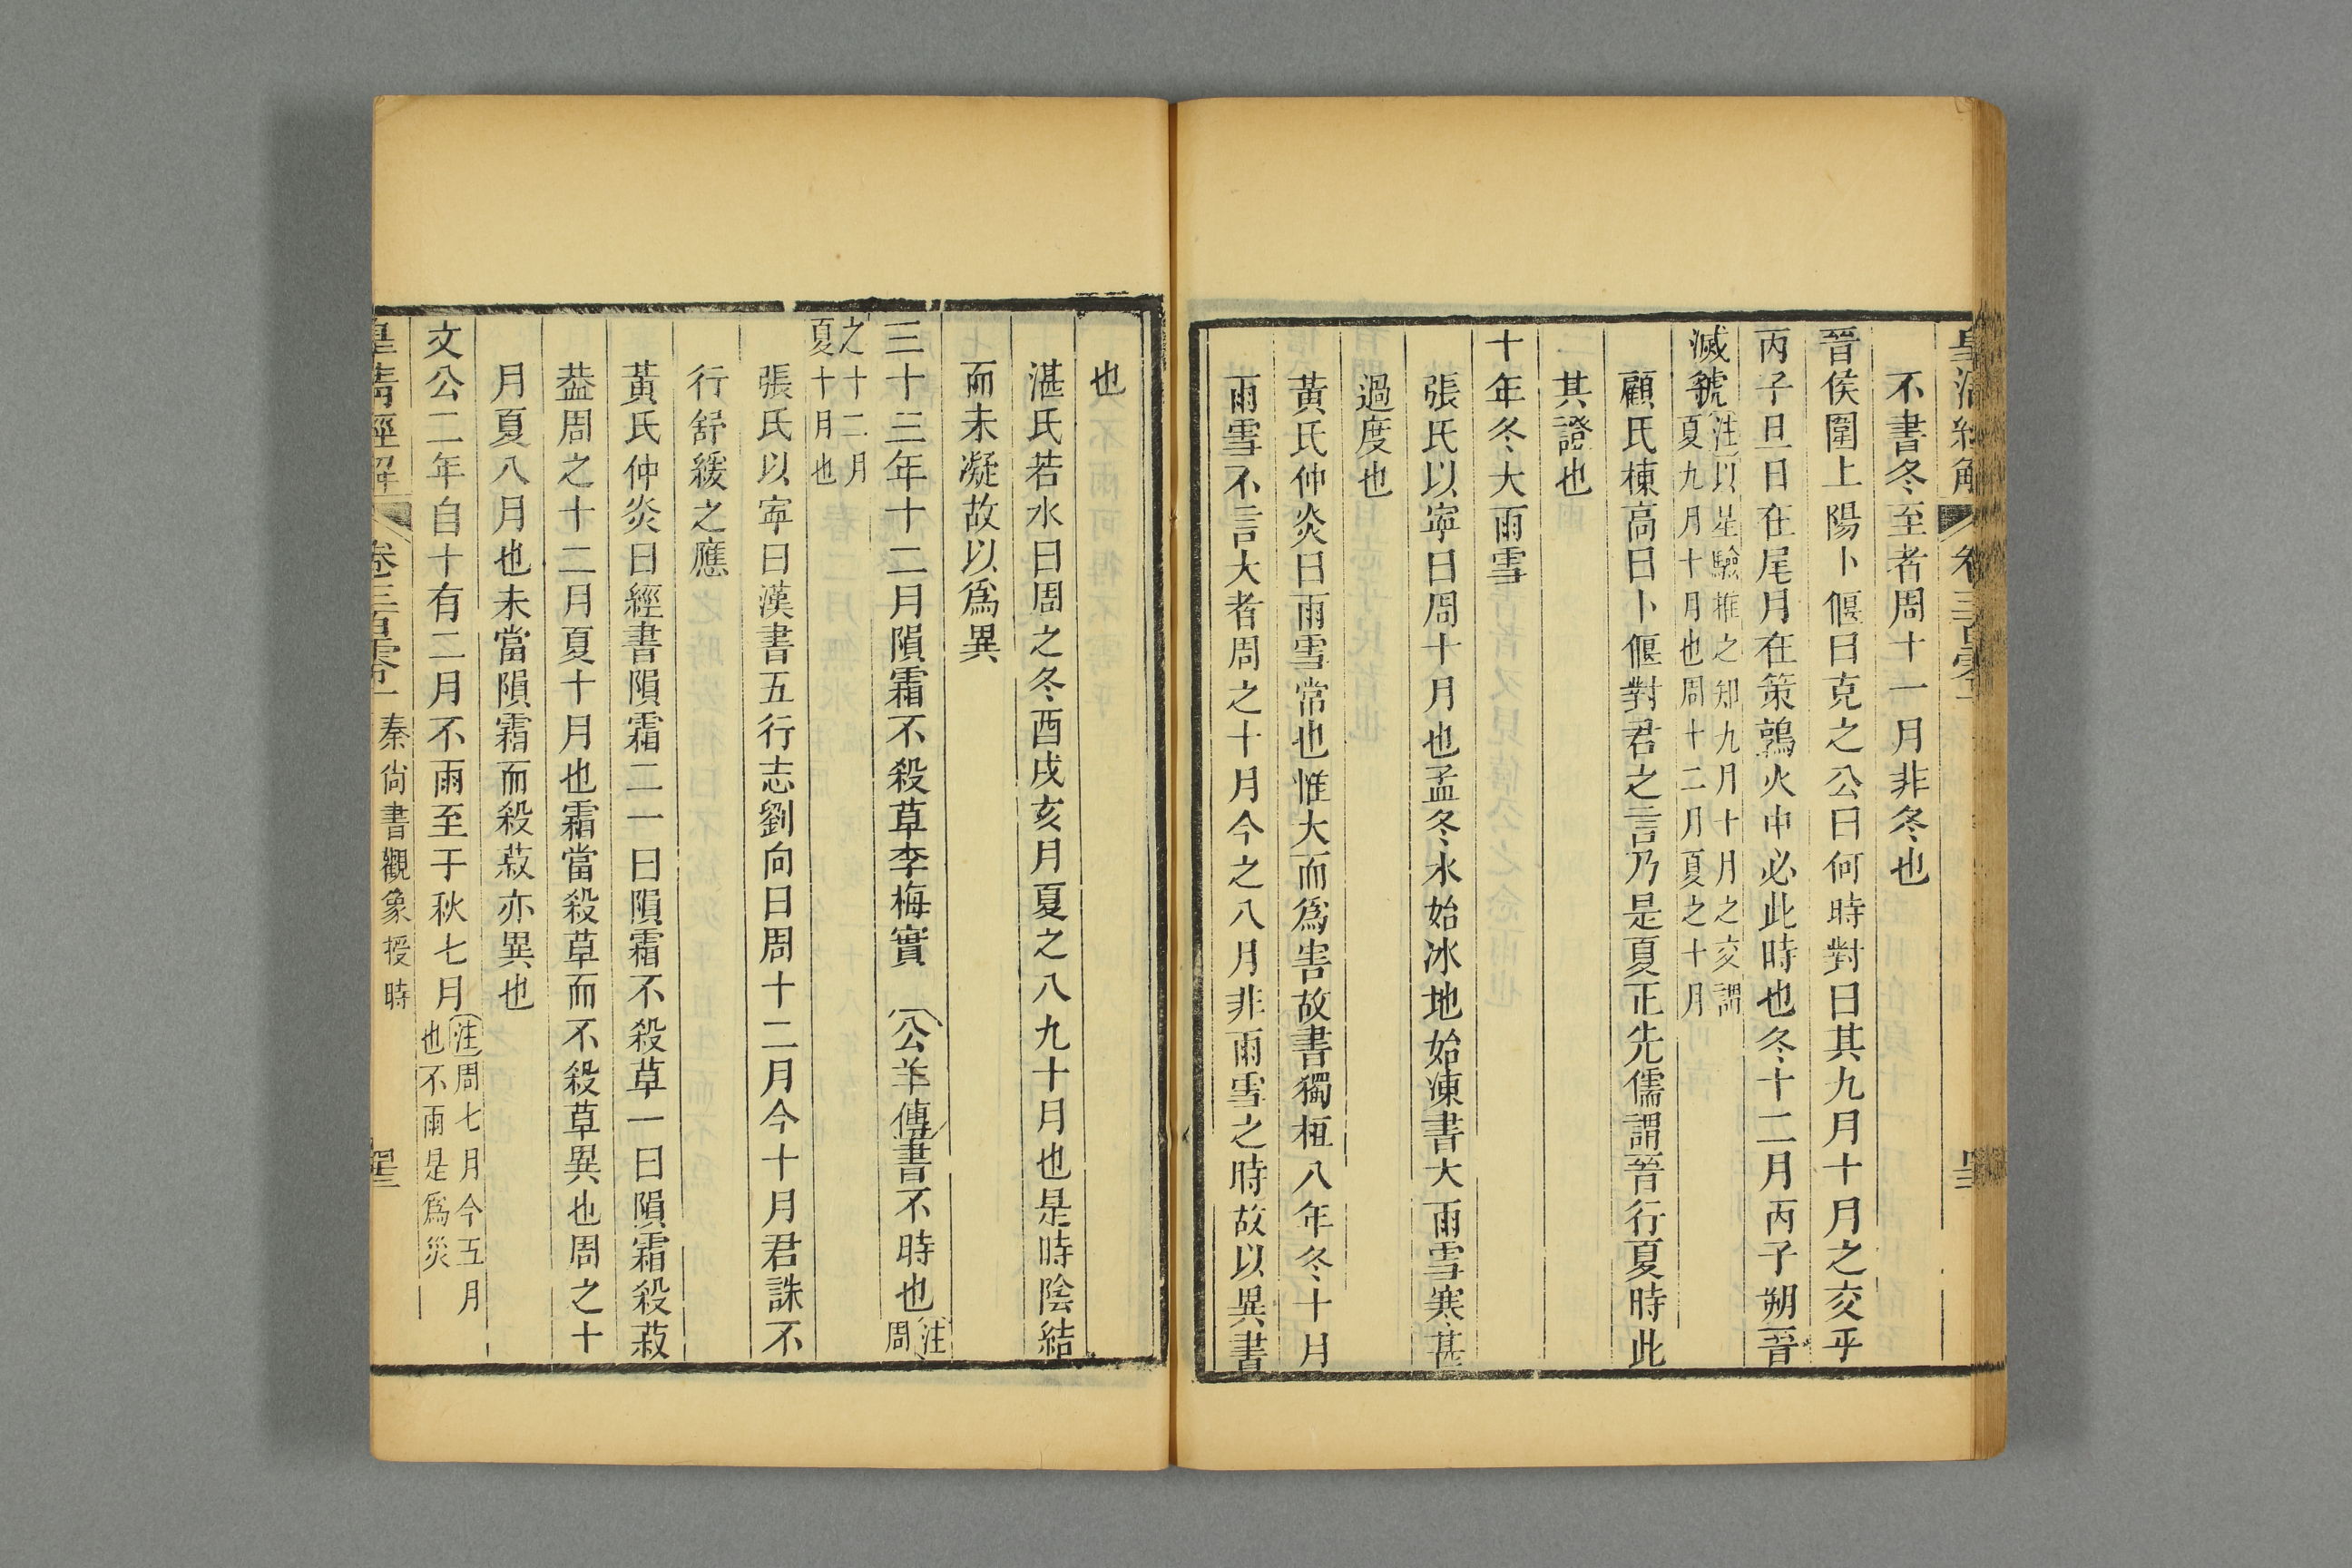 皇清經解 卷三百零一
不書冬至者周十一月非冬也
晉侯圍上陽卜偃曰克之公曰何時對曰其九月十月之交乎
丙子旦日在尾月在策鶉火中必此時也冬十二月丙子朔晉
滅虢注以星驗推之知九月十月之交謂夏九月十月也周十二月夏之十月
顧氏棟高曰卜偃對君之言乃是夏正先儒謂晉行夏時此
其證也
十年冬大雨雪
張氏以寧曰周十月也孟冬水始冰地始凍書大雨雪寒甚
過度也
黃氏仲炎曰雨雪常也惟大而爲害故書獨桓八年冬十月
雨雪不言大者周之十月今之八月非雨雪之時故以異書
也
湛氏若水曰周之冬酉戌亥月夏之八九十月也是時陰結
而未凝故以爲異
三十三年十二月隕霜不殺草李梅實 公羊傳書不時也注周
之十二月夏十月也
張氏以寧曰漢書五行志劉向曰周十二月今十月君誅不
行舒緩之應
黃氏仲炎曰經書隕霜二一曰隕霜不殺草一曰隕霜殺菽
葢周之十二月夏十月也霜當殺草而不殺草異也周之十
月夏八月也未當隕霜而殺菽亦異也
文公二年自十有二月不雨至于秋七月注周七月今五月也不雨是爲災
皇清經解 卷三百零一 秦尚書觀象授時